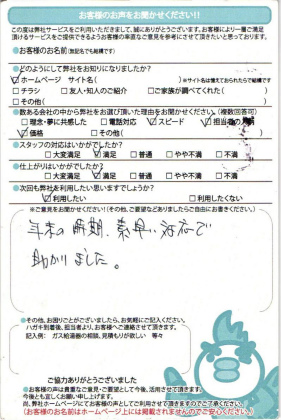 お客様のお声をお聞かせください!!
この度は弊社サービスをご利用いただきまして、誠にありがとうございます。お客様により一層ご満足
頂けるサービスをご提供できるようお客様の率直なご意見を参考にさせて頂きたいと思っております。
●お客様のお名前(無記名でも結構です)
●どのようにして弊社をお知りになりましたか?
ホームページ サイト名( )※サイト名は憶えておられたらで結構です
□チラシ □友人・知人のご紹介 □ご家族が調べてくれた(
□その他(
●数ある会社の中から弊社をお選び頂いた理由をお聞かせください。(複数回答可)
□理念・夢に共感した □電話対応 スピード 担当者の
価格 □その他( )
●スタッフの対応はいかがでしたか?
□大変満足 満足 □普通 □やや不満 □不満
●仕上がりはいかがでしたか?
□大変満足 満足 □普通 □やや不満 □不満
●次回も弊社を利用したい思いますでしょうか?
利用したい □利用したくない
※ご意見をお聞かせください!(その他、ご要望などありましたらご自由にお書きください。)
年末の時期、素早い対応で
助かりました。
●その他、お困りごとがございましたら、お気軽にご記入ください。
ハガキ到着後、担当者より、お客様へご連絡させて頂きます。
記入例: ガス給湯器の相談、見積もりが欲しい 等々
ご協力ありがとうございました
●お客様の声は貴重なご意見・ご要望として今後、活用させて頂きます。
今後とも宜しくお願い申し上げます。
尚、弊社ホームページにてお客様の声としてご利用させて頂きますのでご了承ください。
(お客様のお名前はホームページ上には掲載されませんのでご安心ください。)